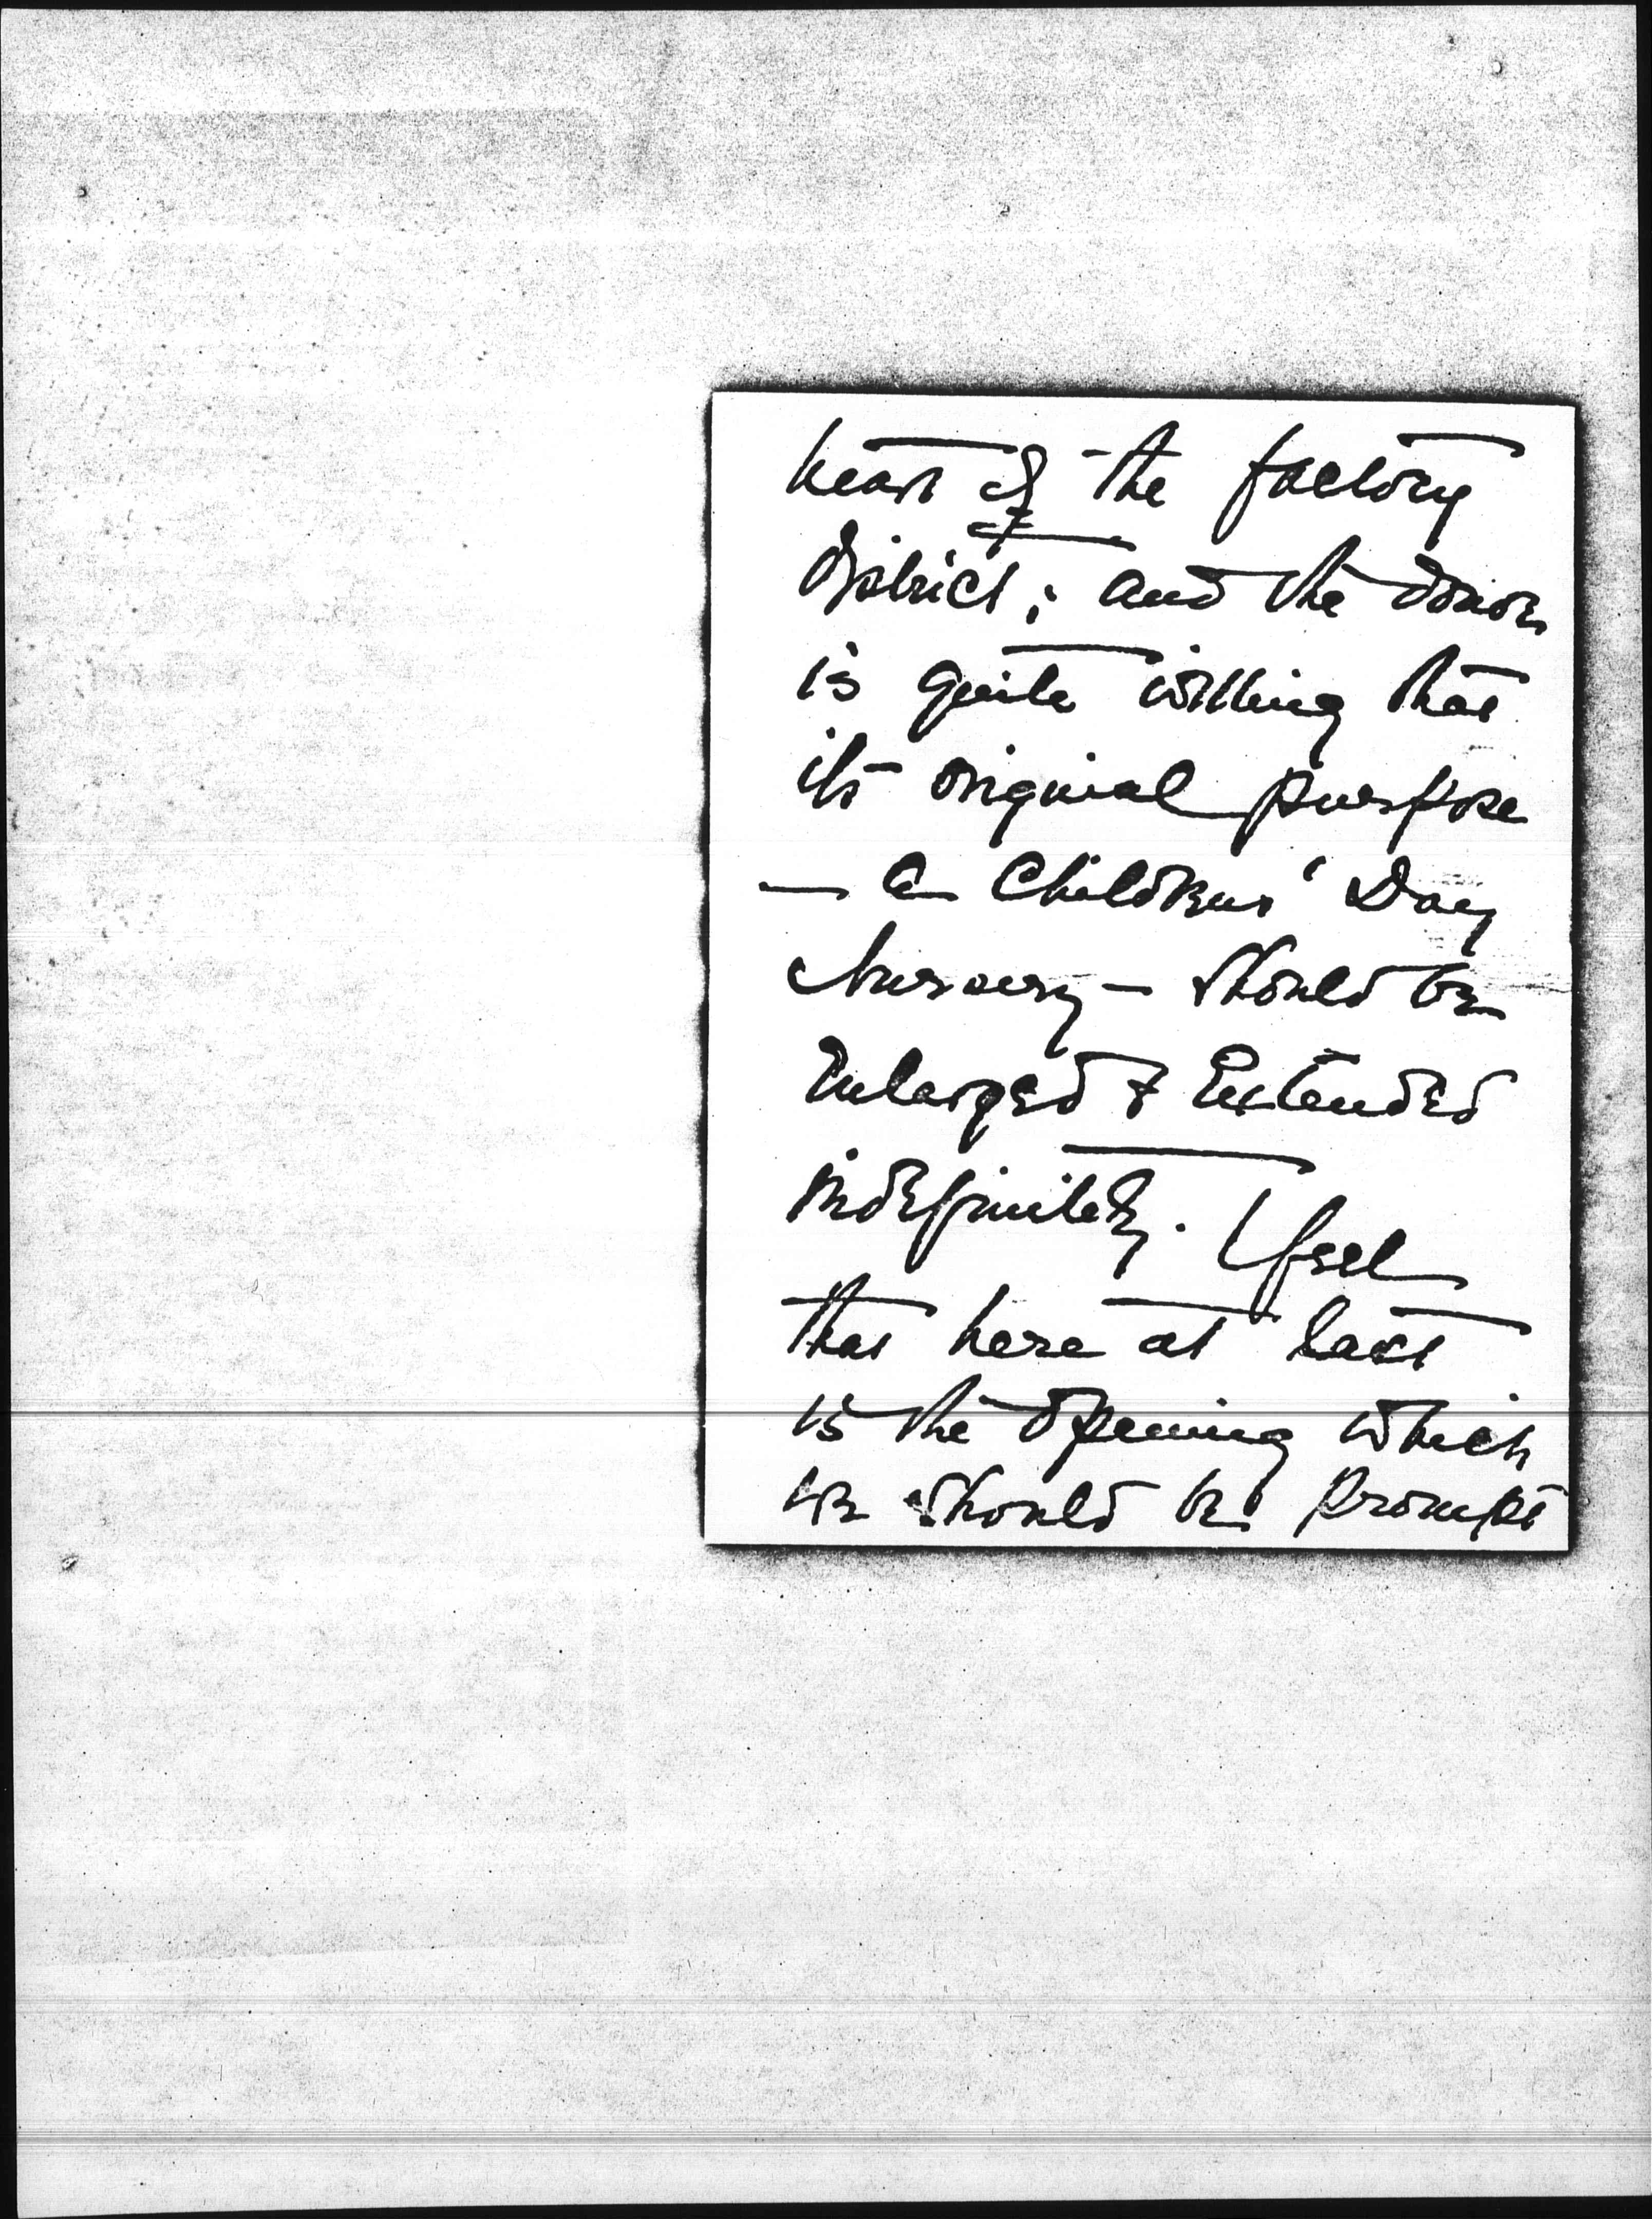 heart of the factory
district; and the donor
is quite willing that
its original purpose
— a Childrens' Day
Nursery — should be
Enlarged & Extended
indefinitely. I feel
that here at last
is the opening which
we should be prompt